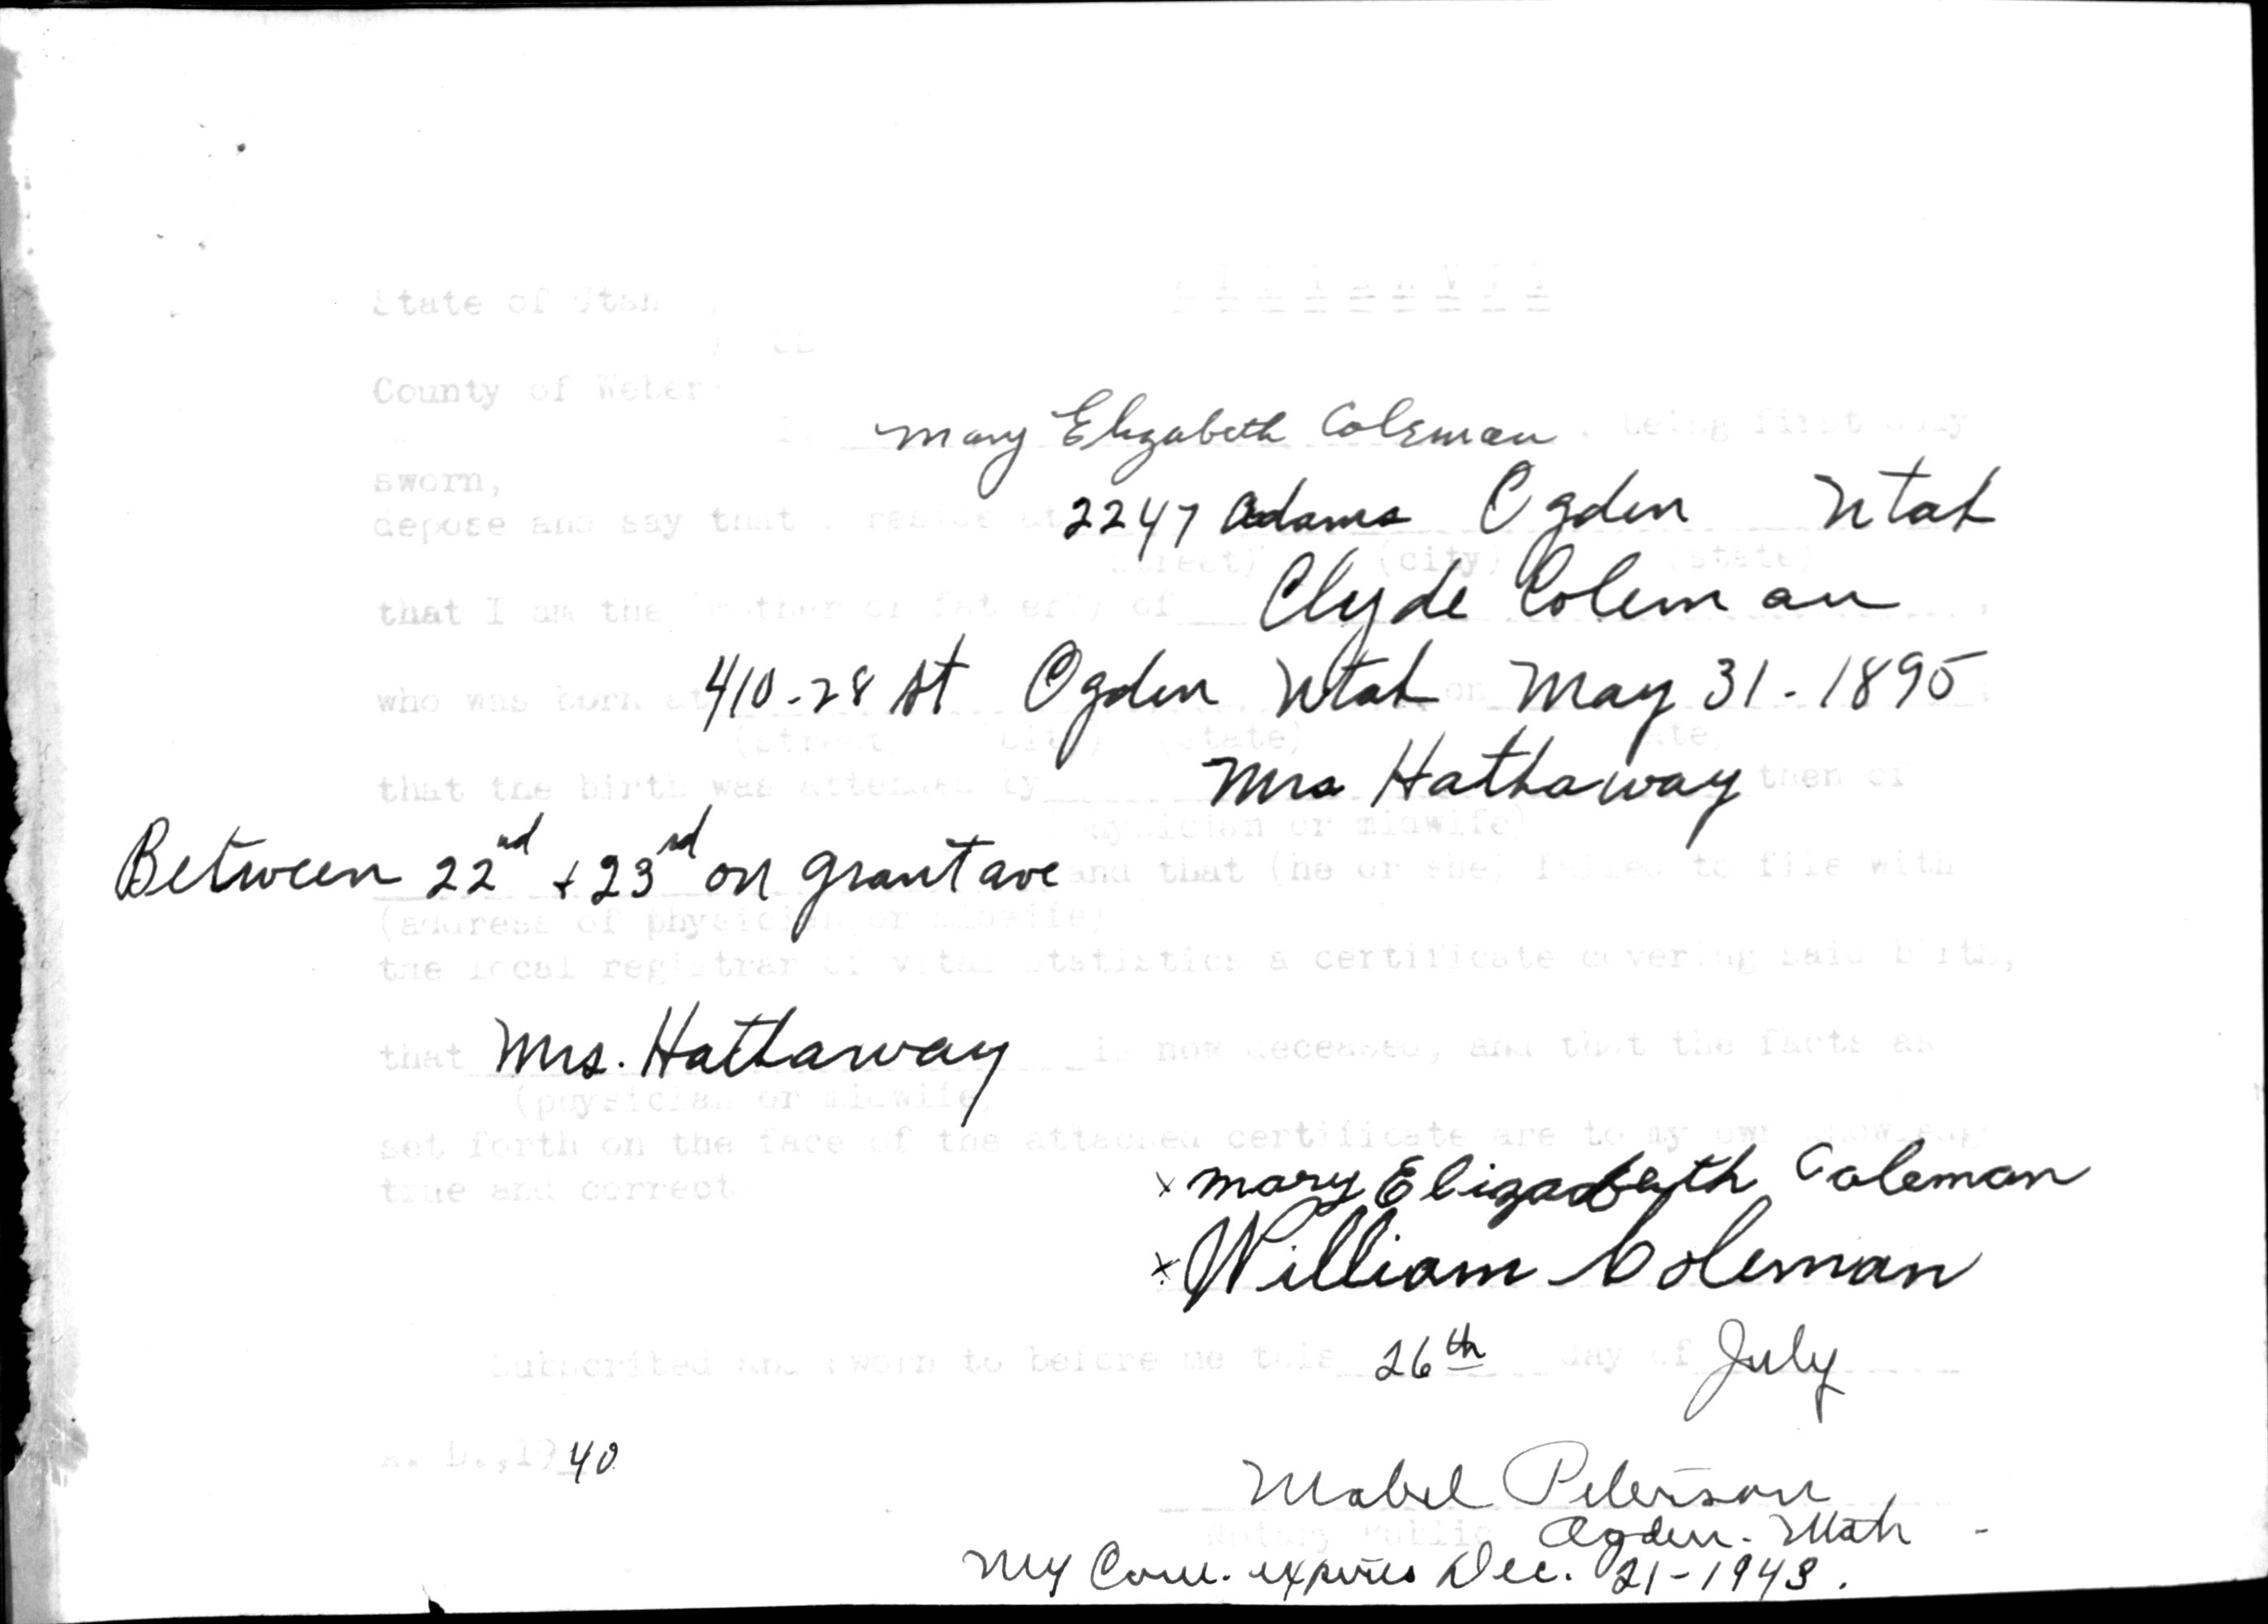 State of Utah ) AFFIDAVIT
) ss
County of Weber
I, Mary Elizabeth Coleman, being first duly
sworn,
depose and say that I reside at 2247 Adams Ogden Utah
(street) (city) (state)
that I am the (mother or father) of Clyde Coleman,
who was born at 410-28 St Ogden Utah on May 31-1895,
(street) (city) (state) (date)
that the birth was attended by Mrs Hathaway then of
(physician or midwife)
Between 22nd + 23rd on Grant ave and that (he or she) failed to file with
(address of physician or midwife)
the local registrar of vital statistics a certificate covering said birth,
that Mrs. Hathaway is now deceased, and that the facts as
(physician or midwife)
set forth on the face of the attached certificate are to my own knowledge
true and correct
x Mary Elizabeth Coleman
x William Coleman
Subscribed and sworn to before me this 26th day of July
A. D., 1940
Mabel Peterson
Notary Public Ogden. Utah -
My Com. expires Dec. 21-1943.